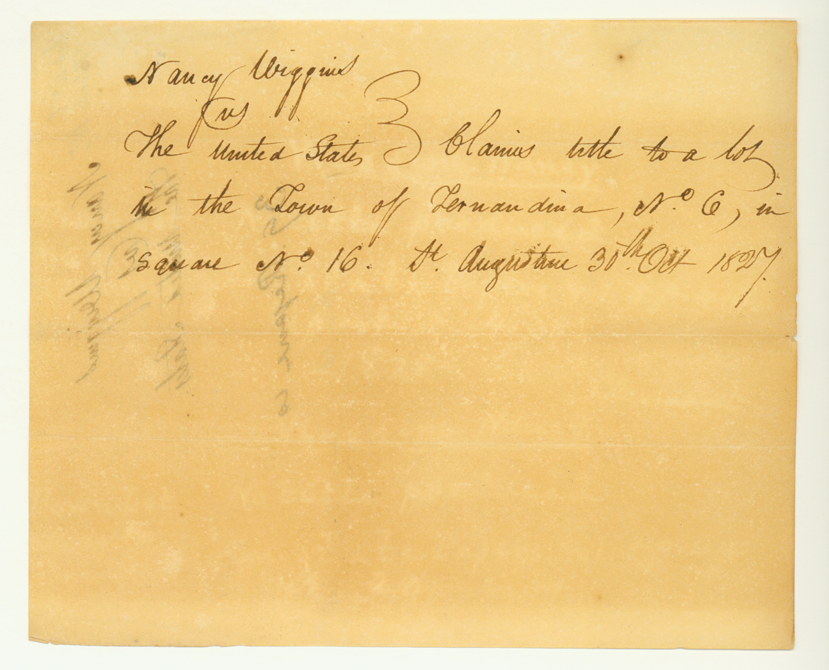 Nancy Wiggins
vs
The United States } Claims title to a lot
in the Town of Fernandina, No. 6, in
Square No. 16. St. Augustine 30th. Oct 1827.